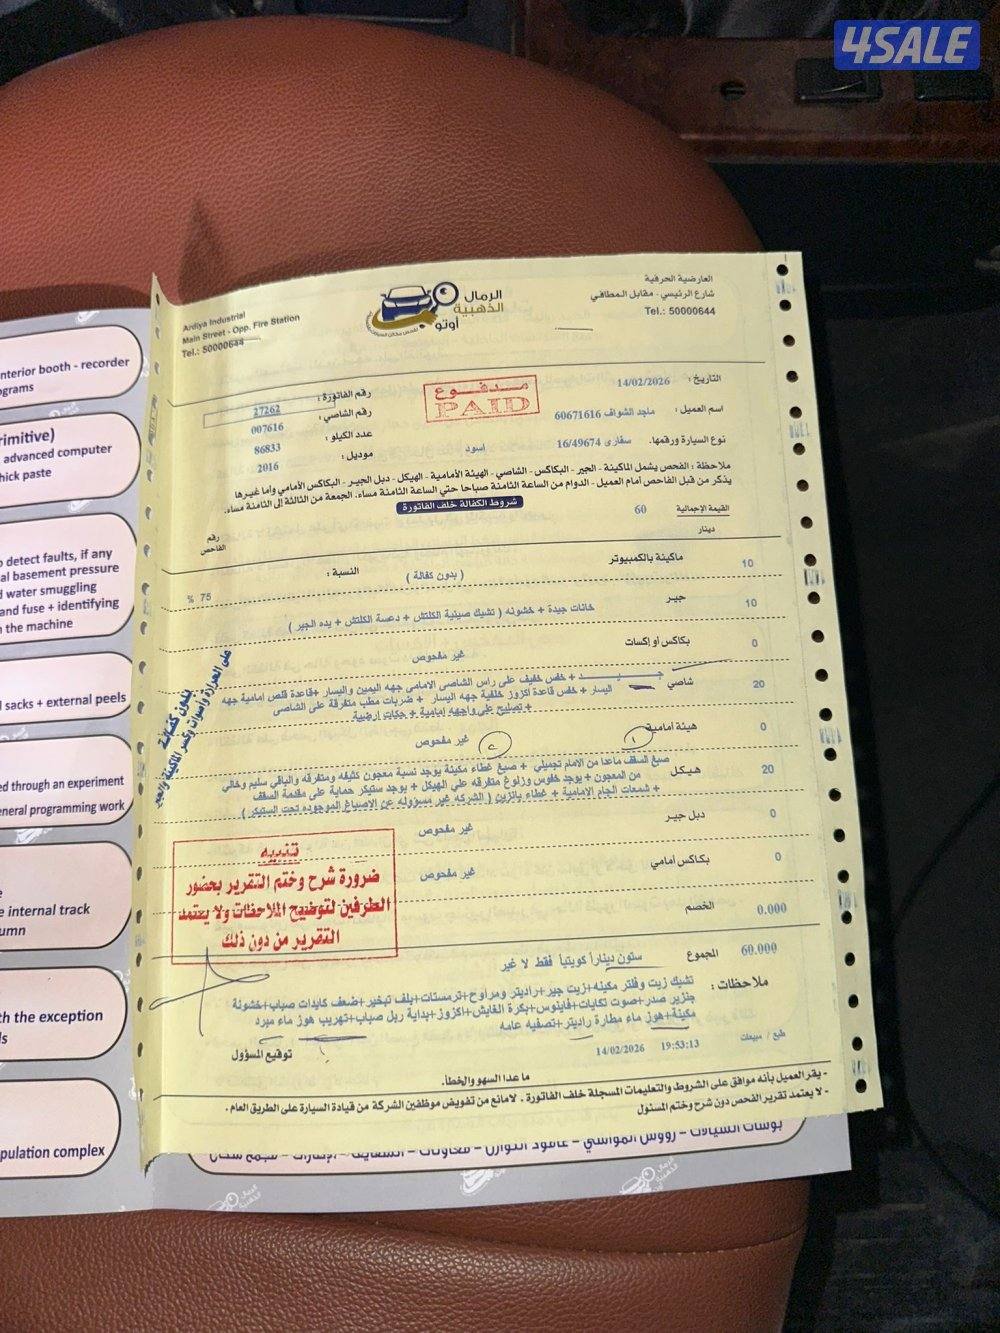 4SALE
العارضية الحرفية
شارع الرئيسي - مقابل المطافي
Tel.: 50000644
الرمال
الذهبية
أوتو
Ardiya Industrial
Main Street - Opp. Fire Station
Tel.: 50000644
التاريخ : 14/02/2026
مدفوع
PAID
رقم الفاتورة : 27262
اسم العميل : ماجد الشواف 60671616
رقم الشاصي : 007616
نوع السيارة ورقمها. سفاري 16/49674 اسود
عدد الكيلو : 86833
موديل : 2016
ملاحظة : الفحص يشمل الماكينة - الجير - البكاكس - الشاصي - الهيئة الأمامية - الهيكل - دبل الجير - البكاكس الأمامي وأما غيرها
يذكر من قبل الفاحص أمام العميل - الدوام من الساعة الثامنة صباحا حتي الساعة الثامنة مساء. الجمعة من الثالثة إلى الثامنة مساء.
شروط الكفالة خلف الفاتورة
القيمة الإجمالية 60
دينار
رقم
الفاحص
10 ماكينة بالكمبيوتر ( بدون كفالة ) النسبة : 75 %
10 جير خانات جيدة + خشونه ( تشيك صينية الكلتش + دعسة الكلتش + يده الجير )
0 بكاكس أو إكسات غير مفحوص
20 شاصي جيد + خفس خفيف على راس الشاصي الامامي جهه اليمين واليسار + قاعدة قلص امامية جهه
اليسار + خفس قاعدة اكزوز خلفية جهه اليسار + ضربات مطب متفرقة على الشاصي
+ تصليح على واجهه إمامية + حكات ارضية
0 هيئة أمامية غير مفحوص
20 هيكل صبغ السقف ماعدا من الامام تجميلي + صبغ غطاء مكينة يوجد نسبة معجون كثيفه ومتفرقه والباقي سليم وخالي
من المعجون + يوجد خفوس وزلوغ متفرقه علي الهيكل + يوجد ستيكر حماية على مقدمة السقف
+ شمعات الجام الإمامية + غطاء بانزين ( الشركه غير مسؤوله عن الاصباغ الموجوده تحت الستيكر )
0 دبل جير غير مفحوص
0 بكاكس أمامي غير مفحوص
بدون كفالة
على الحرارة وأصوات وكسر الماكينة والجير
تنبيه
ضرورة شرح وختم التقرير بحضور
الطرفين لتوضيح الملاحظات ولا يعتمد
التقرير من دون ذلك
0.000 الخصم
60.000 المجموع ستون ديناراً كويتياً فقط لا غير
ملاحظات : تشيك زيت وفلتر مكينه+زيت جير+راديتر ومراوح+ترمستات+بلف تبخير+ضعف كايدات صباب+خشونة
جنزير صدر+صوت تكايات+فاينوس+بكرة القايش+اكزوز+بداية ربل صباب+تهريب هوز ماء مبرد
مكينة+هوز ماء مطارة راديتر+تصفيه عامه
طبع / مبيعات 19:53:13 14/02/2026
توقيع المسؤول
ما عدا السهو والخطأ.
- يقر العميل بأنه موافق على الشروط والتعليمات المسجلة خلف الفاتورة . لامانع من تفويض موظفين الشركة من قيادة السيارة على الطريق العام .
- لا يعتمد تقرير الفحص دون شرح وختم المسئول
nterior booth - recorder
ograms
rimitive)
advanced computer
hick paste
o detect faults, if any
al basement pressure
d water smuggling
and fuse + identifying
n the machine
l sacks + external peels
ed through an experiment
eneral programming work
e internal track
umn
th the exception
ls
pulation complex